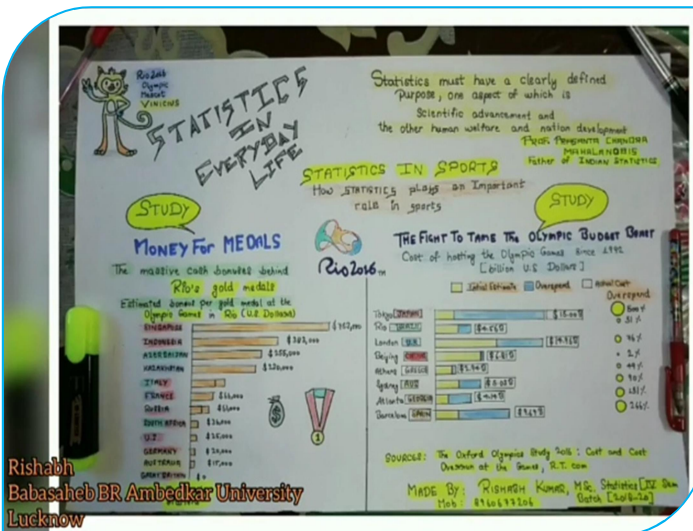 Rio 2016
Olympic
Mascot
VINICIUS
STATISTICS
IN
EVERYDAY
LIFE
Statistics must have a clearly defined
Purpose, one aspect of which is
Scientific advancement and
the other human welfare and nation development
PROF. PRASANTA CHANDRA
MAHALANOBIS
Father of INDIAN STATISTICS
STATISTICS IN SPORTS
How STATISTICS plays an Important
role in sports
STUDY
MONEY FOR MEDALS
The massive cash bonuses behind
Rio's gold medals
Estimated bonus per gold medal at the
Olympic Games in Rio (U.S Dollars)
SINGAPORE
INDONESIA
AZERBAIJAN
KAZAKHSTAN
ITALY
FRANCE
RUSSIA
SOUTH AFRICA $36,000
U.S $25,000
GERMANY $20,000
AUSTRALIA $15,000
GREAT BRITAIN $0
Rio2016
STUDY
THE FIGHT TO TAME THE OLYMPIC BUDGET BEAST
Cost of hosting the Olympic Games Since 1992
[billion U.S Dollars]
Initial Estimate Overspend Actual Cost
Overspend
Tokyo JAPAN
Rio BRAZIL 51%
London U.K 76%
Beijing CHINA 2%
Athens GREECE 49%
Sydney AUS 90%
Atlanta GEORGIA 151%
Barcelona SPAIN 266%
SOURCES: The Oxford Olympics Study 2016: Cost and Cost
Overrun at the Games, R.T. com
MADE BY: RISHABH KUMAR, MSc. Statistics
Mob: 8960677206 Batch [2018-20]
Rishabh
Babasaheb BR Ambedkar University
Lucknow